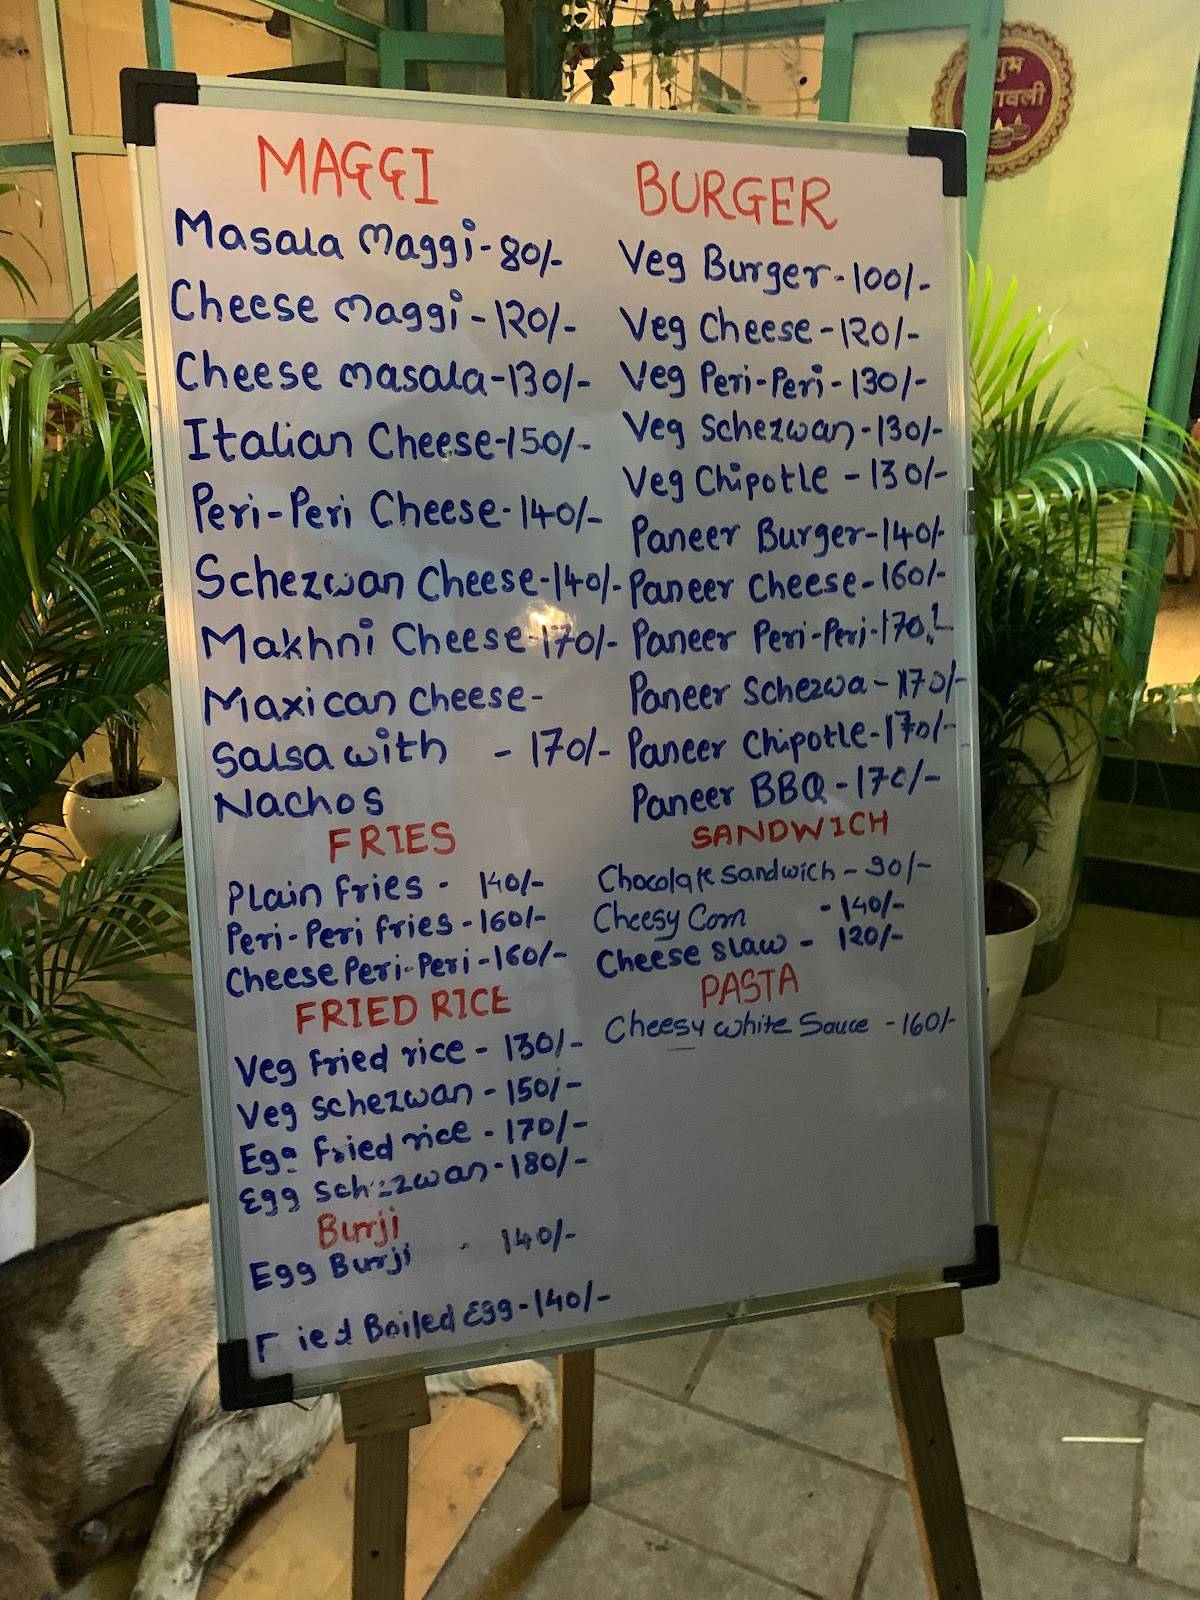 MAGGI
Masala Maggi-80/-
Cheese Maggi-120/-
Cheese masala-130/-
Italian Cheese-150/-
Peri-Peri Cheese-140/-
Schezwan Cheese-140/-
Makhni Cheese-170/-
Maxican Cheese-
Salsa with - 170/-
Nachos
FRIES
Plain fries - 140/-
Peri-Peri fries-160/-
Cheese Peri-Peri-160/-
FRIED RICE
Veg fried rice - 130/-
Veg Schezwan - 150/-
Egg fried rice - 170/-
Egg Schezwan - 180/-
Burrji
Egg Burji - 140/-
Fried Boiled Egg-140/-
BURGER
Veg Burger-100/-
Veg Cheese-120/-
Veg Peri-Peri-130/-
Veg Schezwan-130/-
Veg Chipotle - 130/-
Paneer Burger-140/-
Paneer Cheese-160/-
Paneer Peri-Peri-170/-
Paneer Schezwa-170/-
Paneer Chipotle-170/-
Paneer BBQ-170/-
SANDWICH
Chocolate Sandwich - 90/-
Cheesy Corn - 140/-
Cheese slaw - 120/-
PASTA
Cheesy white Sauce - 160/-
शुभ